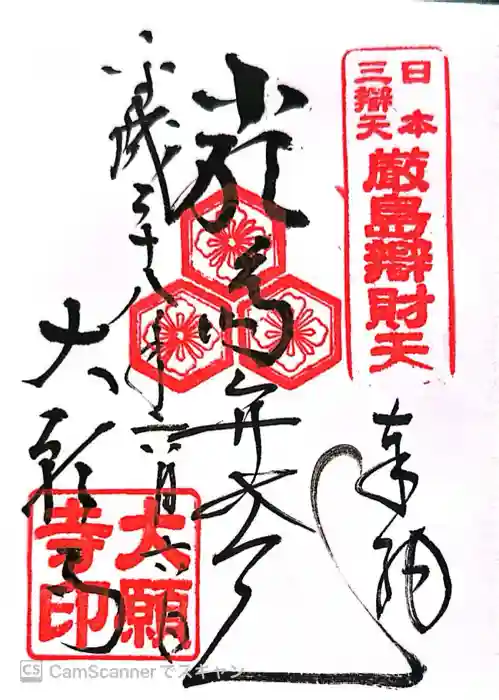 日本
三辯天
厳島辯財天
奉納
厳島弁才天
平成二十八年六月六日
大願寺
大願
寺印
CS CamScannerでスキャン